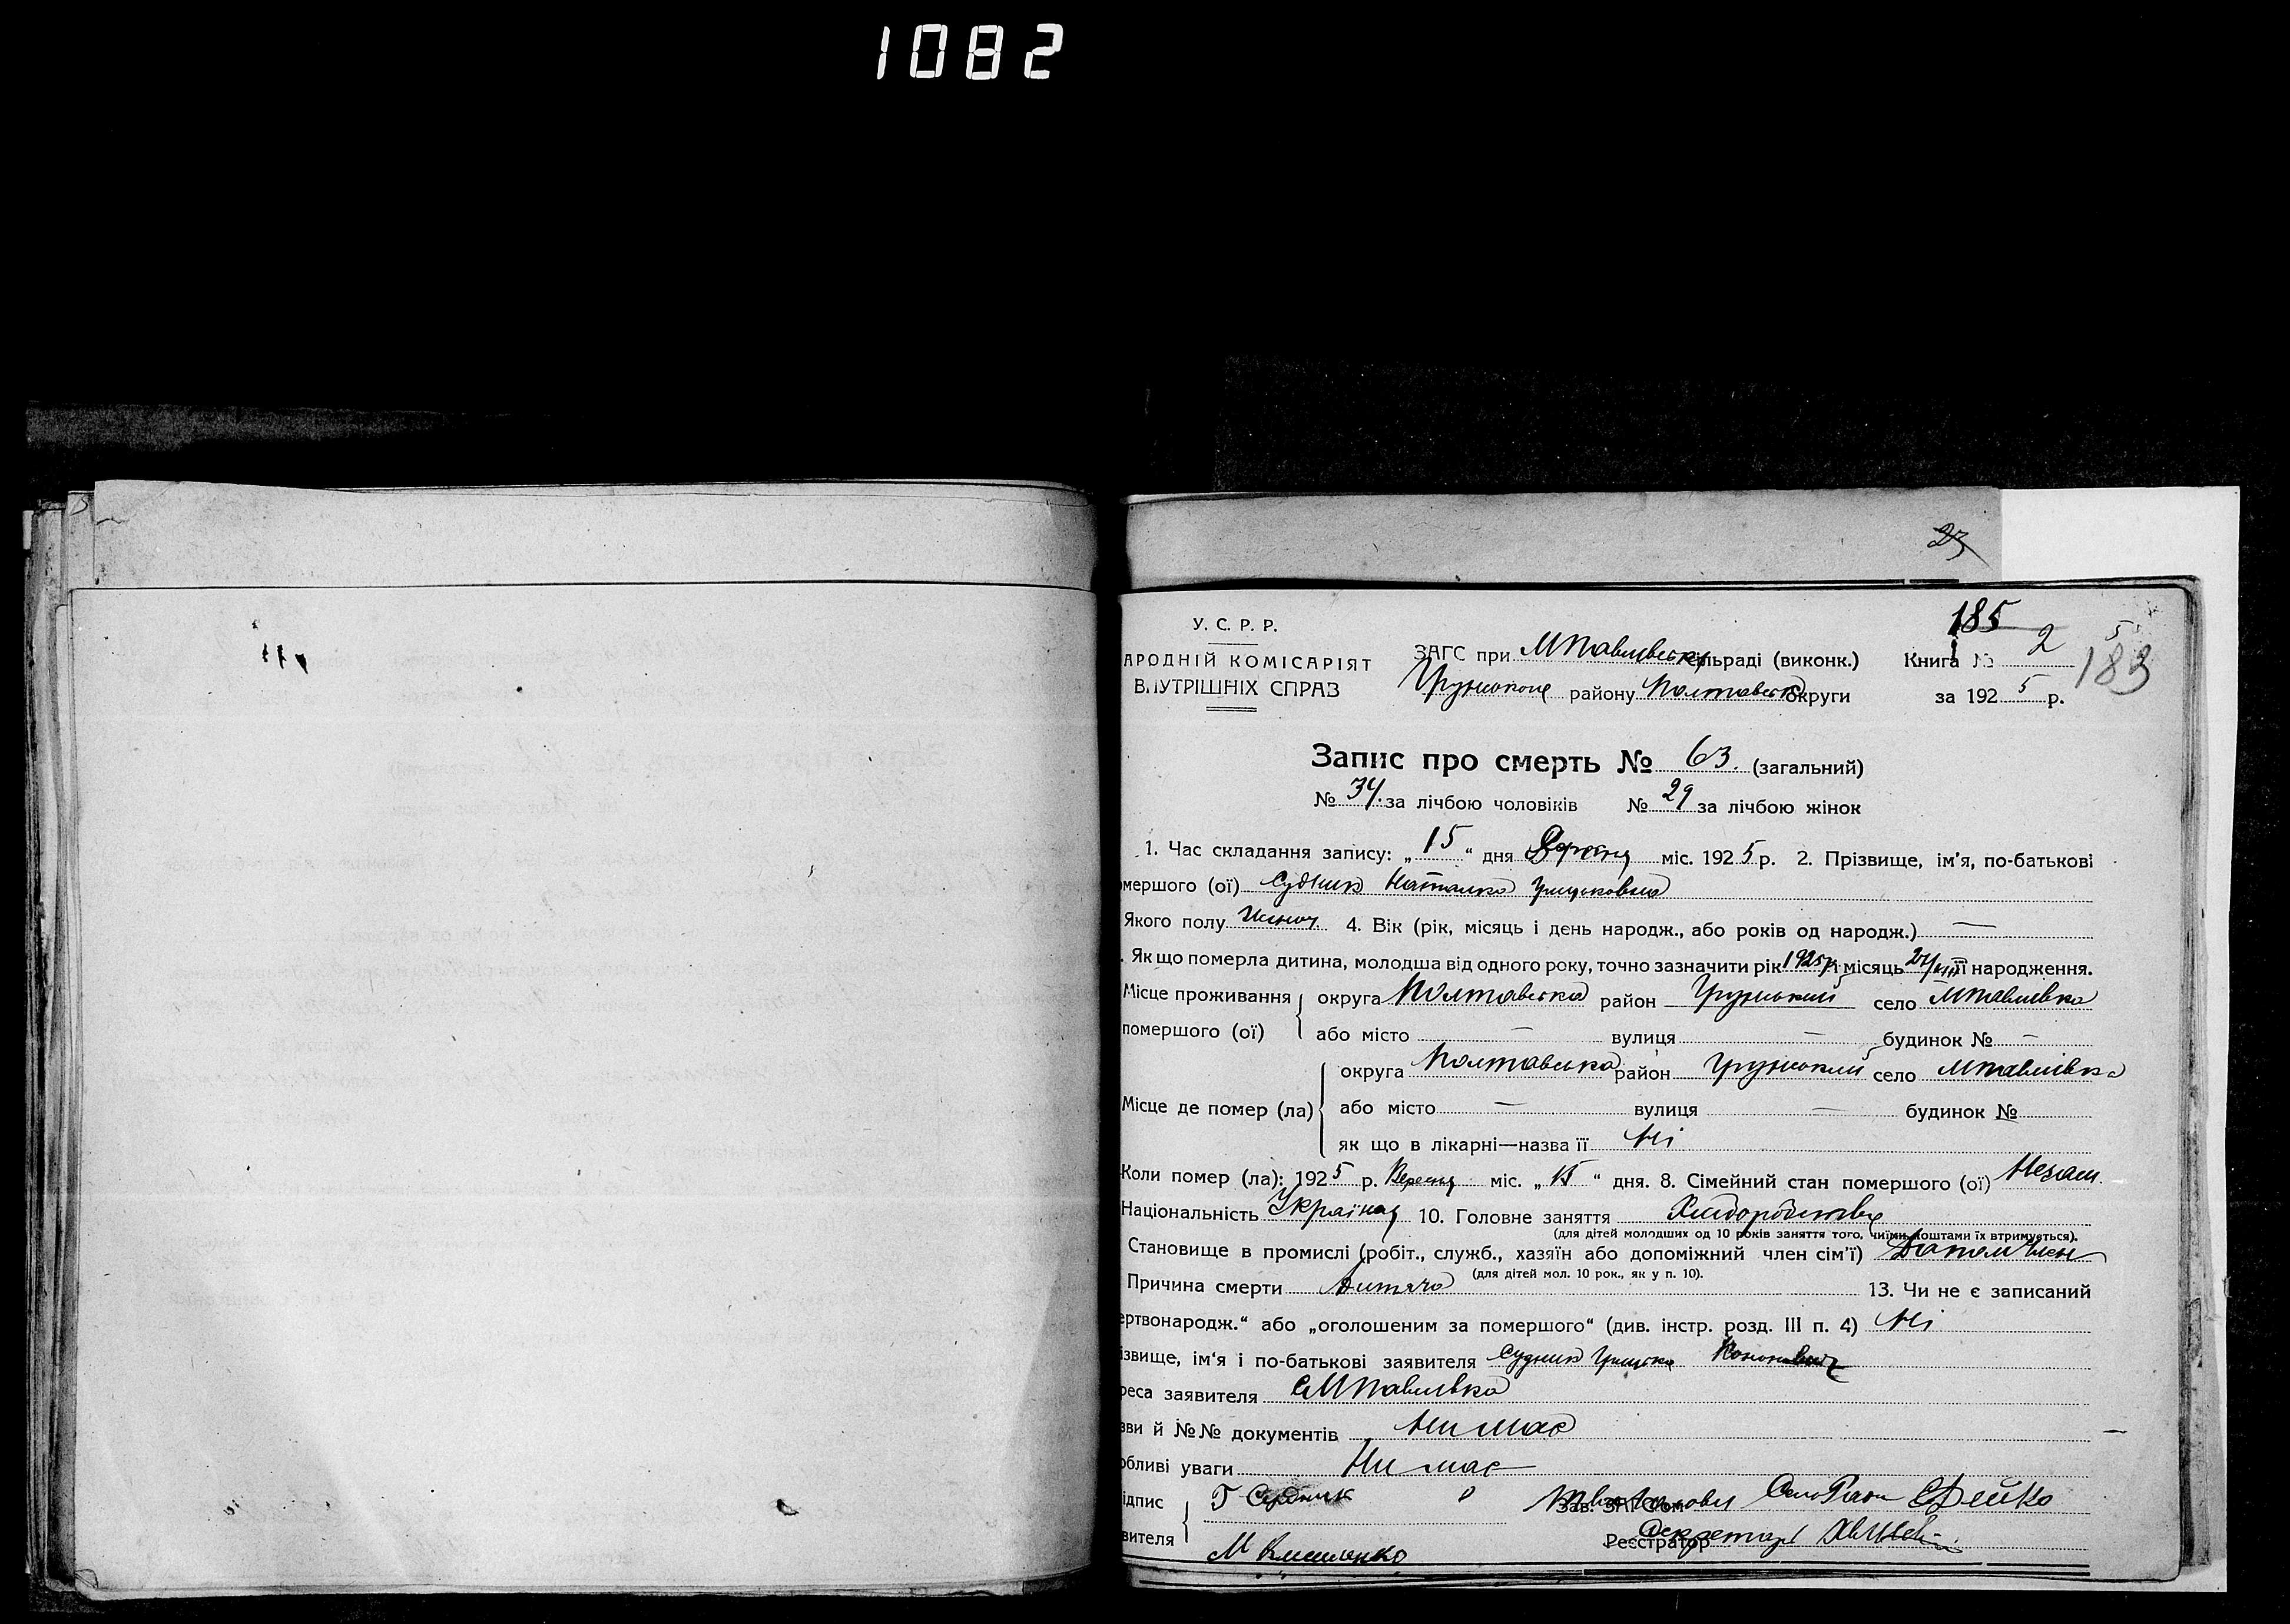 1082
23
185
У. С. Р. Р.
АРОДНІЙ КОМІСАРІЯТ
ВНУТРІШНІХ СПРАЗ
ЗАГС при МПавлівськ сільраді (виконк.) Книга № 2
183
5
Грунського району Полтавськ округи за 192 5 р.
Запис про смерть № 63. (загальний)
№ 34. за лічбою чоловіків № 29 за лічбою жінок
1. Час складання запису: „ 15 “ дня Вересня міс. 192 5 р. 2. Прізвище, ім'я, по-батькові
мершого (ої) Судник Наталка Грицьковна
Якого полу Жіноч. 4. Вік (рік, місяць і день народж., або років од народж.) —
. Як що померла дитина, молодша від одного року, точно зазначити рік 1925р і місяць 24/VIII її народження.
Місце проживання округа Полтавська район Грунський село МПавлівка
помершого (ої) або місто — вулиця — будинок № —
округа Полтавська район Грунський село МПавлівка
Місце де помер (ла) або місто — вулиця — будинок №
як що в лікарні—назва її Ні
Коли помер (ла): 192 5 р. Вересня міс. „ 15 “ дня. 8. Сімейний стан помершого (ої)
Національність Україн 10. Головне заняття Хліборобство
(для дітей молодших од 10 років заняття того, чиїми коштами їх втримується).
Становище в промислі (робіт., служб., хазяїн або допоміжний член сім'ї) Допом член
(для дітей мол. 10 рок., як у п. 10).
Причина смерти Дитяча 13. Чи не є записаний
ертвонародж.“ або „оголошеним за помершого“ (див. інстр. розд. III п. 4) Ні
ізвище, ім'я і по-батькові заявителя Судник Грицько Кононович
реса заявителя С МПавлівка
зви й №№ документів Ни має
обливі уваги Ни має
ідпис Г Судник Зав. ЗАГСом Дейко
вителя Реєстратор Секретар
М